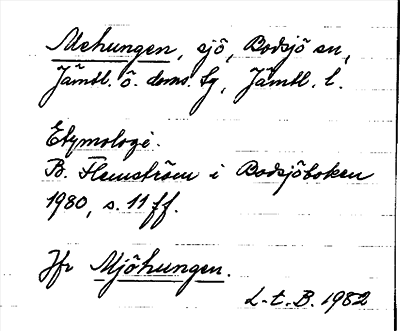 Mehungen, sjö, Bodsjö sn,
Jämtl. ö. doms. tg, Jämtl. l.
Etymologi.
B. Flemström i Bodsjöboken
1980, s. 11 ff.
Jfr Mjöhungen.
L-t. B. 1982